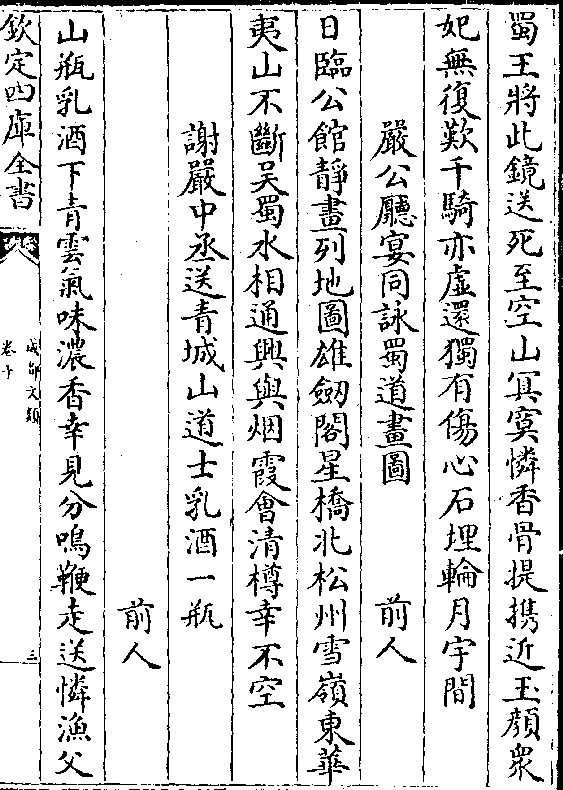 蜀王將此鏡送死至空山冥寞憐香骨提携近玉顔衆
妃無復歎千騎亦虚還獨有傷心石埋輪月宇間
嚴公廳宴同詠蜀道畫圖　前人
日臨公館靜畫列地圖雄劒閣星橋北松州雪嶺東華
夷山不斷吴蜀水相通興與烟霞會清樽幸不空
謝嚴中丞送青城山道士乳酒一瓶
前人
山瓶乳酒下青雲氣味濃香幸見分鳴鞭走送憐漁父
欽定四庫全書
成都文類
卷十
三